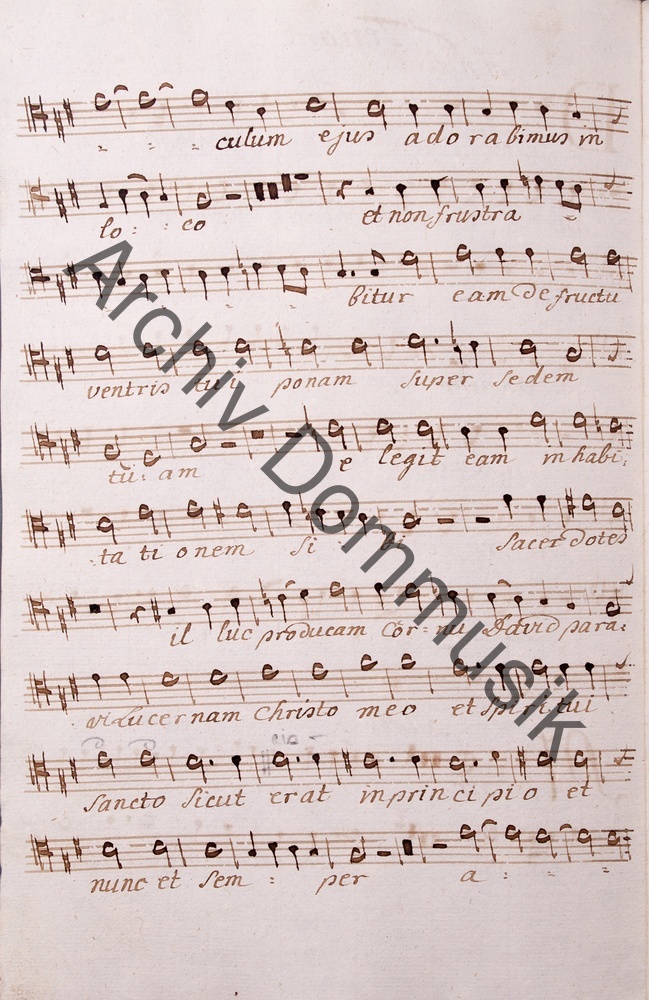 culum ejus adorabimus in
lo: : co et non frustra
bitur eam De fructu
ventris tui ponam super sedem
tü: am elegit eam in habi:
tationem si bi sacerdotes
il luc producam Cor: nu David para:
vi Lucernam Christo meo et spiritui
cio
sancto sicut erat in principio et
nunc et sem : per a
Archiv Dommusik